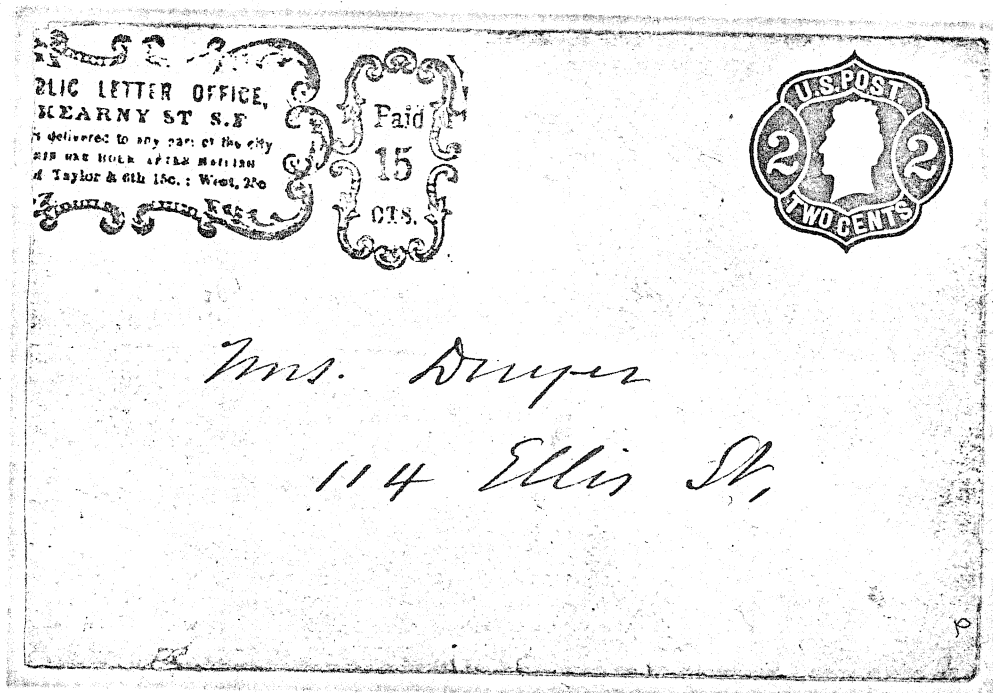 BLIC LETTER OFFICE,
KEARNY ST S.F
s delivered to any part of the city
ONE HOUR AFTER
d Taylor & 6th 15c. : West, 25c
Paid
15
CTS.
U.S. POST
2 2
TWO CENTS
Mrs. Dwyer
114 Ellis St,